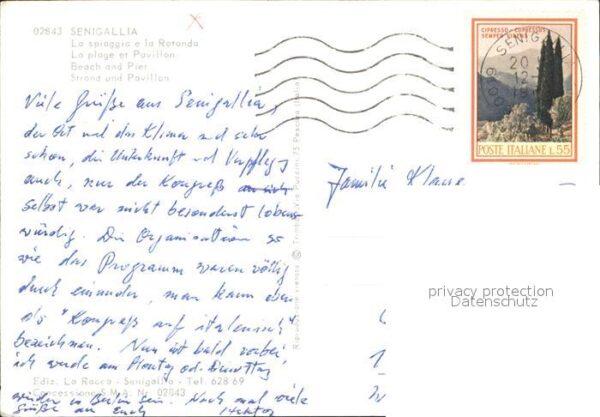 02843 SENIGALLIA
La spiaggia e la Rotonda
La plage et Pavillon
Beach and Pier
Strand und Pavillon
CIPRESSO - CUPRESSUS
SEMPER VIRENS
POSTE ITALIANE L.55
SENIGALLIA
20
12
Viele Grüße aus Senigallia,
der Ort und das Klima sind sehr
schön, die Unterkunft und Verpflegg
auch, nur der Kongreß
selbst war nicht besonderst lobens
würdig. Die Organisation so
wie das Programm waren völlig
durch einander, man kann eben
als "Kongreß auf italienisch"
bezeichnen. Nun ist bald vorbei,
ich werde am Montag od. Dienstag
wieder in Berlin sein. Noch mal viele
Grüße an euch
Familie Klause
Ediz. La Rocca - Senigallia - Tel. 628 69
Concessione S.M.A. Nr. 02843
privacy protection
Datenschutz